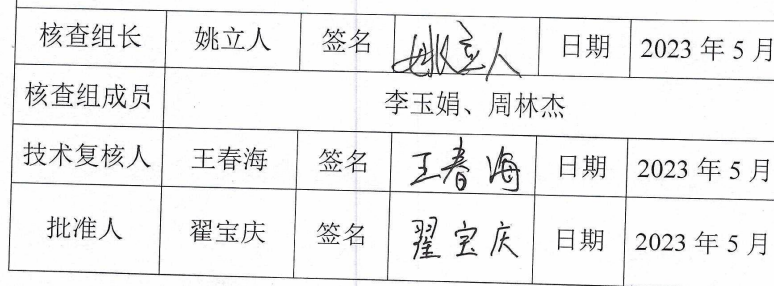 核查组长 姚立人 签名 姚立人 日期 2023 年 5 月
核查组成员 李玉娟、周林杰
技术复核人 王春海 签名 王春海 日期 2023 年 5 月
批准人 翟宝庆 签名 翟宝庆 日期 2023 年 5 月